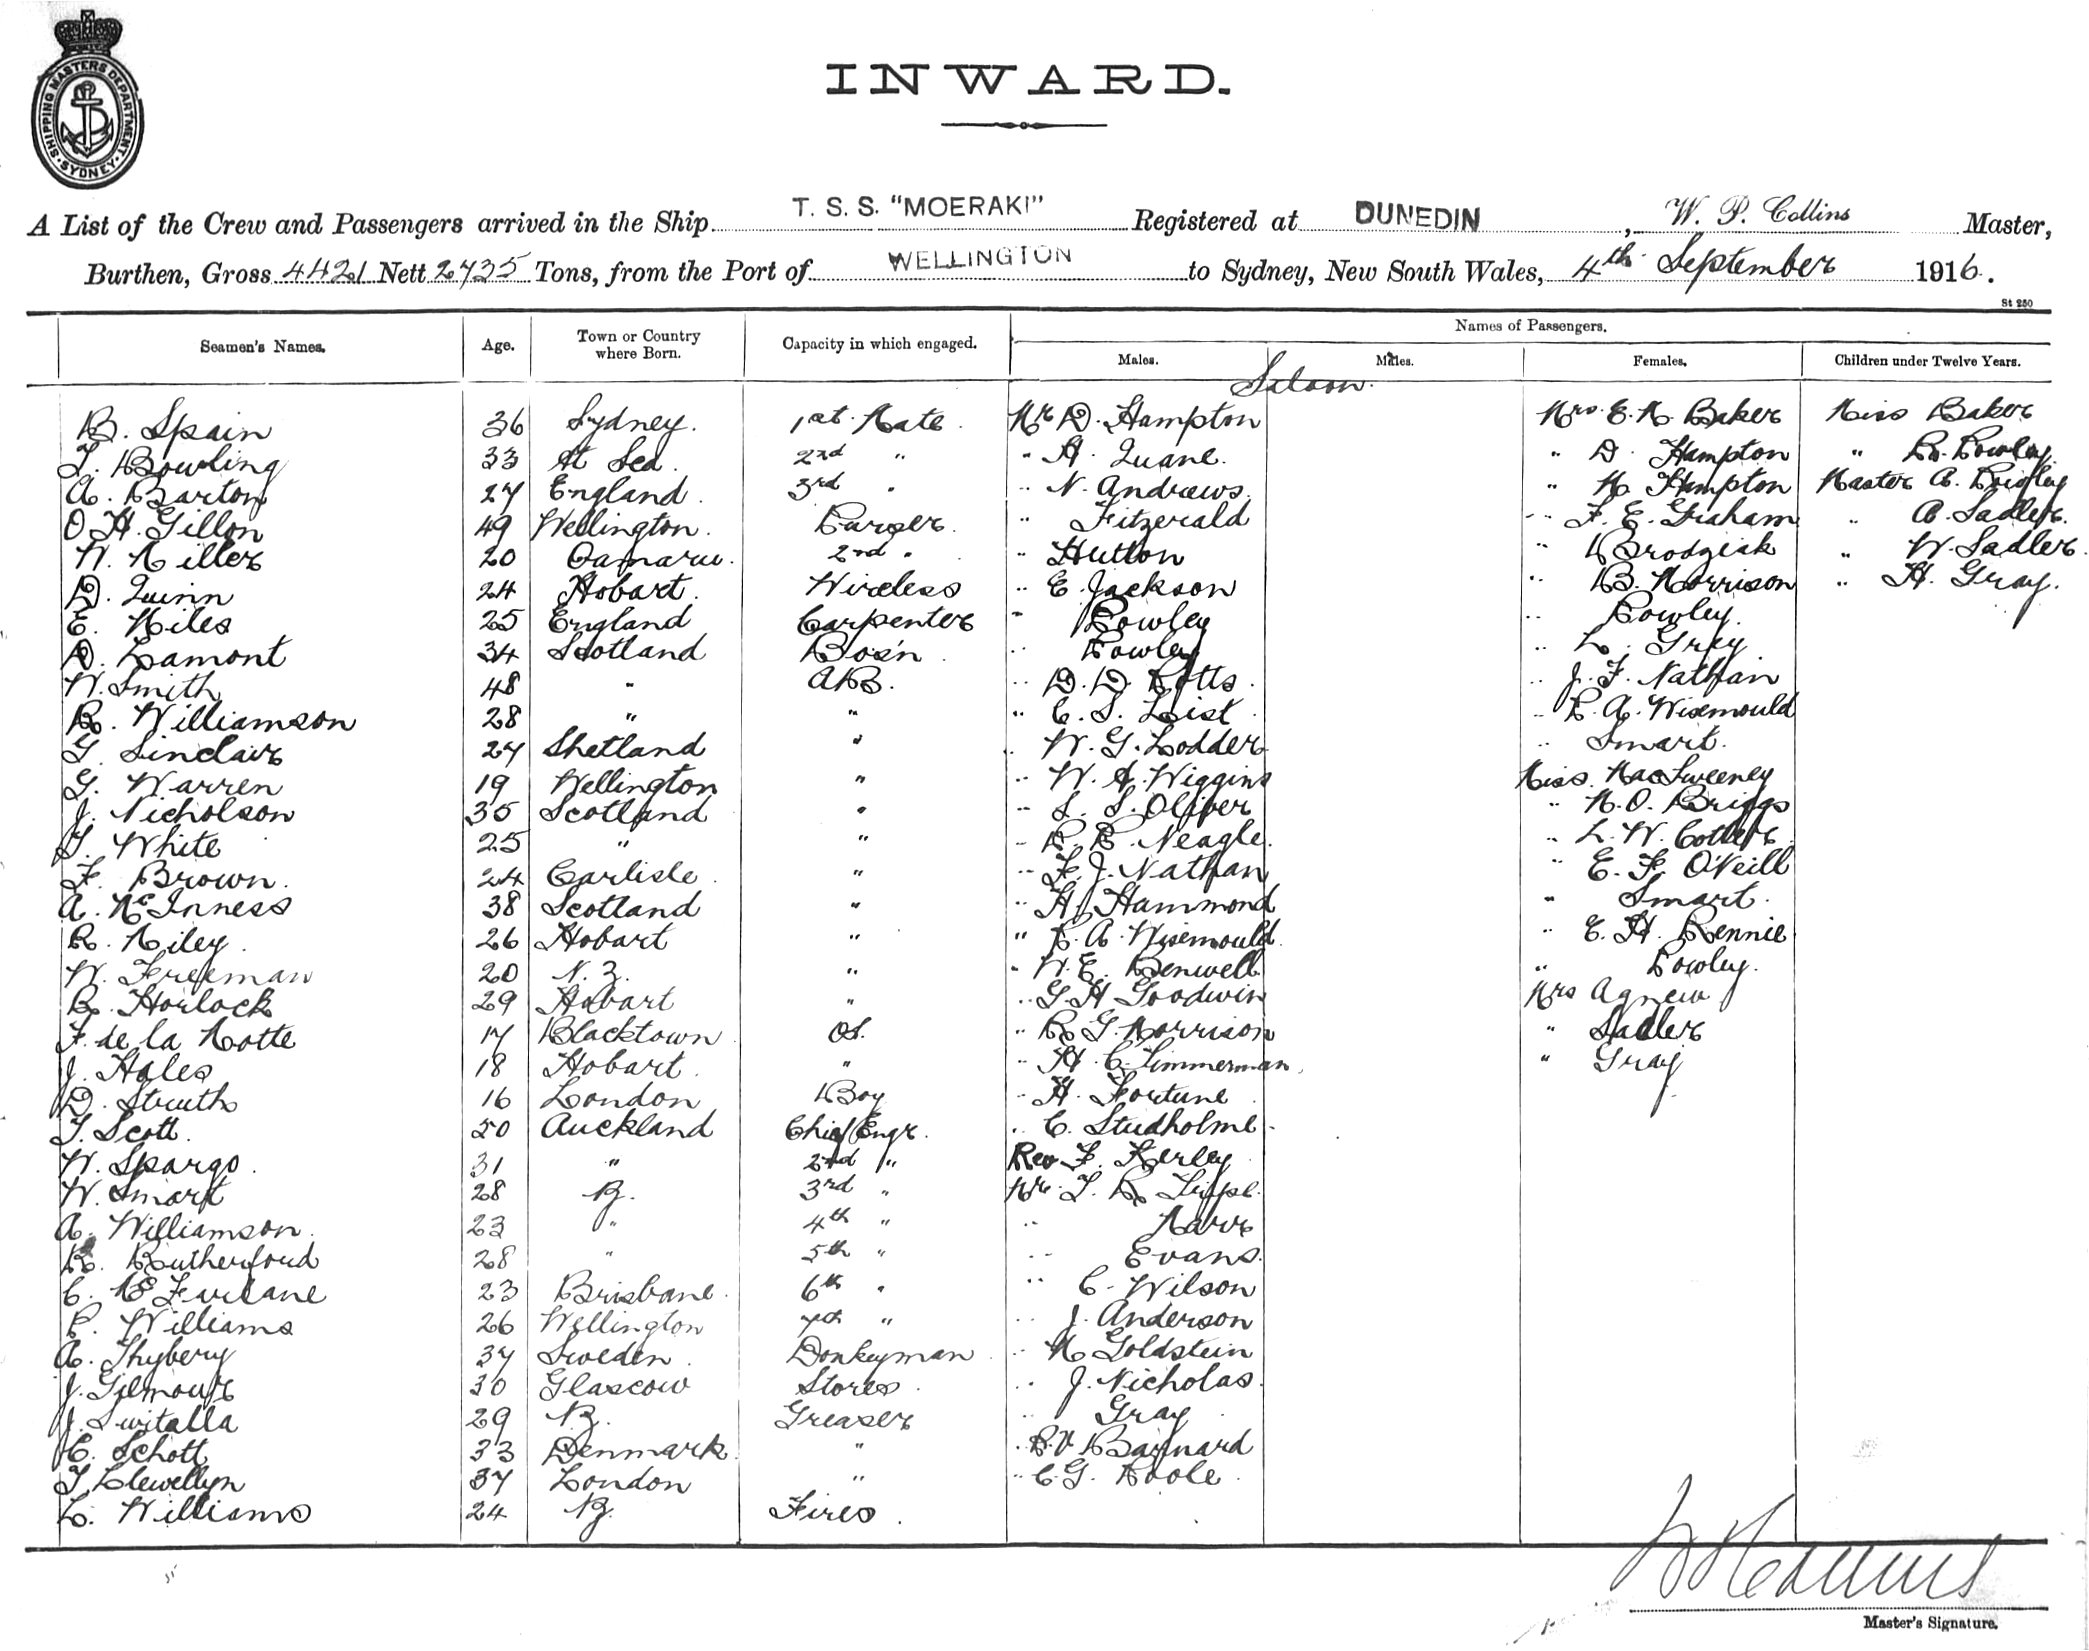 SHIPPING MASTERS DEPARTMENT · SYDNEY ·
INWARD.
A List of the Crew and Passengers arrived in the Ship T. S. S. "MOERAKI" Registered at DUNEDIN, W. P. Collins Master,
Burthen, Gross 4421 Nett 2735 Tons, from the Port of WELLINGTON to Sydney, New South Wales, 4th September 1916.
St 250
Names of Passengers.
Seamen's Names. Age. Town or Country where Born. Capacity in which engaged. Males. Males. Females. Children under Twelve Years.
Saloon.
B. Spain 36 Sydney. 1st Mate Mr D. Hampton Mrs. E. M. Baker Miss Baker
T. Bowling 33 At Sea. 2nd " " H. Quane. " D. Hampton "
A. Barton 27 England. 3rd " " N. Andrews. " M Hampton Master
O H. Gillon 49 Wellington. Purser. " Fitzgerald " F. E. Graham " A. Sadler.
W. Miller 20 Oamaru. 2nd " " Hutton " Brodziak " W. Sadler.
D. Quinn 24 Hobart. Wireless " E. Jackson " B. Morrison " H. Gray.
E. Miles 25 England Carpenter " Rowley " Rowley.
D. Lamont 34 Scotland Bos'n " Rowley " L. Grey
W. Smith 48 " AB. " D. D. Potts. " J. F. Nathan
R. Williamson 28 " " " C. S. List " R. A. Wisemould
G. Sinclair 27 Shetland " " W. G. Lodder " Smart.
G. Warren 19 Wellington " " W. A. Wiggins Miss. MacSweeney
J. Nicholson 35 Scotland " " L. S. Oliver " M. O. Briggs
T. White 25 " " " R. R. Neagle. " L. W. Cotter
F. Brown. 24 Carlisle. " " F. J. Nathan " E. F. O'Neill
A. McInness 38 Scotland " " H. Hammond " Smart.
R. Riley. 26 Hobart " " R. A. Wisemould. " E. H. Rennie
W. Freeman 20 N. Z. " " W. E. Benwell " Rowley.
R. Horlock 29 Hobart " " G. H Goodwin Mrs Agnew
F. de la Motte 17 Blacktown OS. " R G. Morrison " Sadler
J. Hales 18 Hobart. " " H. C. Zimmerman. " Gray
D. Struth 16 London Boy " H. Fortune
T. Scott. 50 Auckland Chief Engr. " C. Studholme.
W. Spargo. 31 " 2nd " Rev F. Kerley
W. Smart 28 NZ. 3rd " Mr. T. R.
A. Williamson. 23 " 4th " " Marr
R. Rutherford 28 " 5th " " Evans.
C. McFarlane 23 Brisbane. 6th " " C. Wilson
P. Williams 26 Wellington 7th " " J. Anderson
A. Thybery 37 Sweden. Donkeyman " M Goldstein
J. Gilmour 30 Glascow Stores. " J. Nicholas.
J. Switalla 29 NZ. Greaser " Gray
C. Schott 33 Denmark. " " R. V Barnard
T. Llewellyn 37 London " " C. G. Poole.
L. Williams 24 NZ. Fires.
Master's Signature.